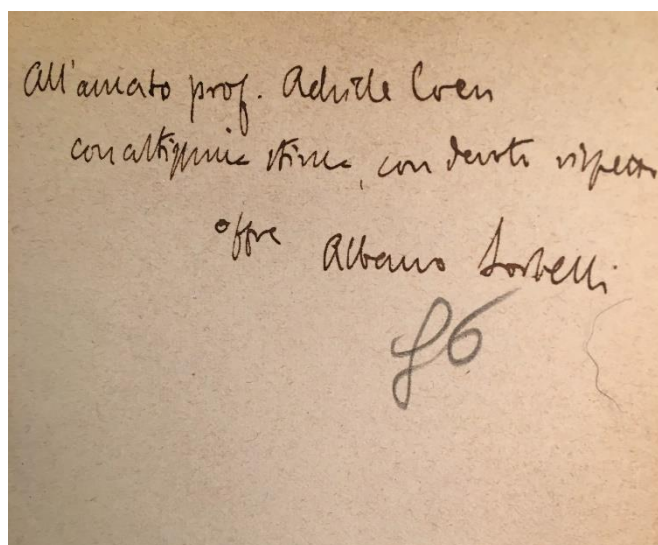 All'amato prof. Achille Coen
con altissima stima, con devoto rispetto
offre Albano Sorbelli
86